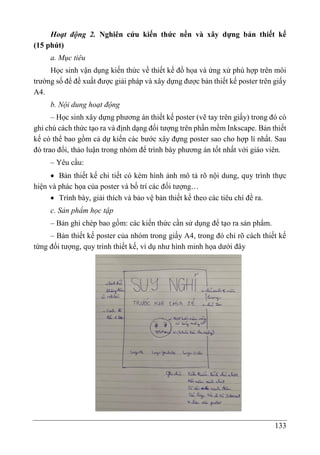 Hoạt động 2. Nghiên cứu kiến thức nền và xây dựng bản thiết kế
(15 phút)
a. Mục tiêu
Học sinh vận dụng kiến thức về thiết kế đồ họa và ứng xử phù hợp trên môi
trường số để đề xuất được giải pháp và xây dựng được bản thiết kế poster trên giấy
A4.
b. Nội dung hoạt động
– Học sinh xây dựng phương án thiết kế poster (vẽ tay trên giấy) trong đó có
ghi chú cách thức tạo ra và định dạng đối tượng trên phần mềm Inkscape. Bản thiết
kế có thể bao gồm cả dự kiến các bước xây đựng poster sao cho hợp lí nhất. Sau
đó trao đổi, thảo luận trong nhóm để trình bày phương án tốt nhất với giáo viên.
– Yêu cầu:
• Bản thiết kế chi tiết có kèm hình ảnh mô tả rõ nội dung, quy trình thực
hiện và phác họa của poster và bố trí các đối tượng…
• Trình bày, giải thích và bảo vệ bản thiết kế theo các tiêu chí đề ra.
c. Sản phẩm học tập
– Bản ghi chép bao gồm: các kiến thức cần sử dụng để tạo ra sản phẩm.
– Bản thiết kế poster của nhóm trong giấy A4, trong đó chỉ rõ cách thiết kế
từng đối tượng, quy trình thiết kế, ví dụ như hình minh họa dưới đây
SUY NGHĨ
TRƯỚC KHI CHIA SẺ
Ghi chú
133